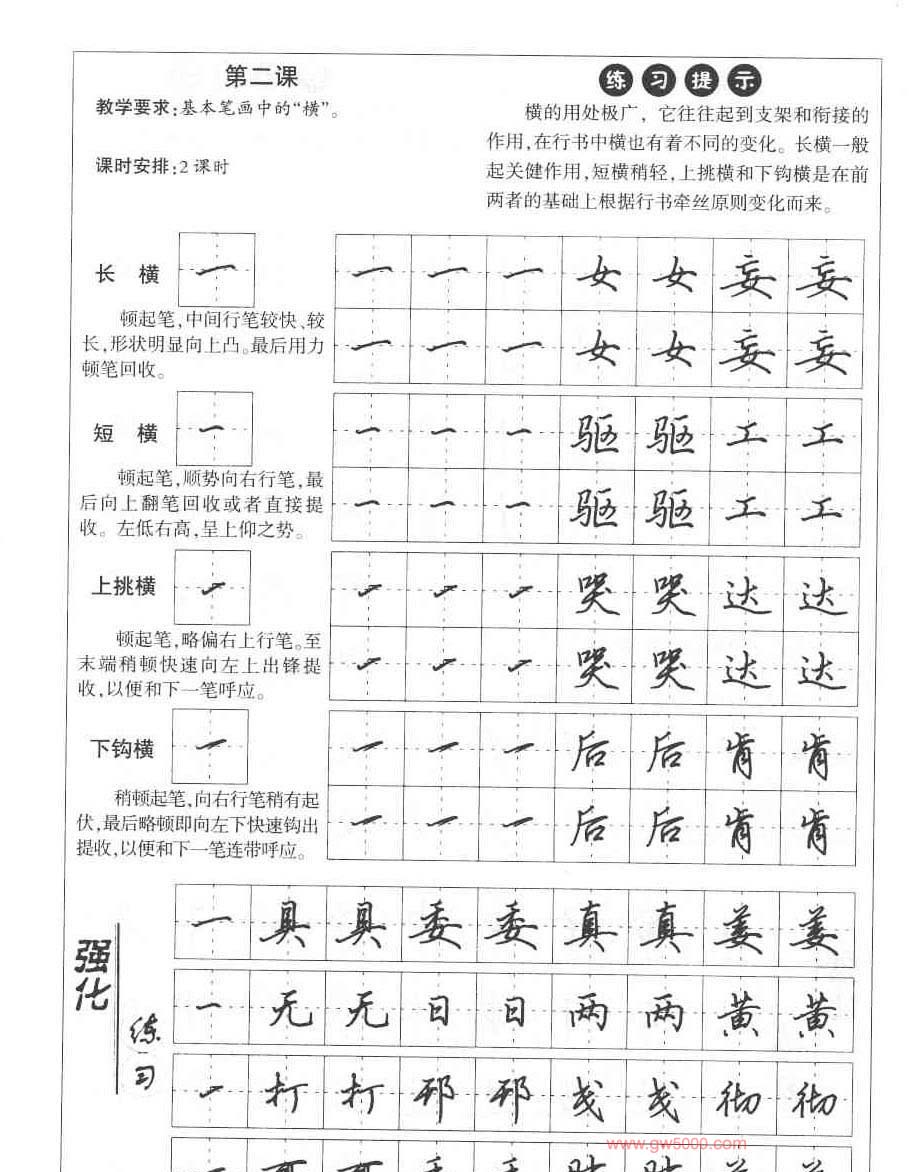 第二课
教学要求:基本笔画中的“横”。
课时安排:2课时
练习提示
横的用处极广，它往往起到支架和衔接的
作用,在行书中横也有着不同的变化。长横一般
起关健作用,短横稍轻,上挑横和下钩横是在前
两者的基础上根据行书牵丝原则变化而来。
长 横 一
顿起笔,中间行笔较快、较
长,形状明显向上凸。最后用力
顿笔回收。
一 一 一 女 女 妄 妄
一 一 一 女 女 妄 妄
短 横 一
顿起笔,顺势向右行笔,最
后向上翻笔回收或者直接提
收。左低右高,呈上仰之势。
一 一 一 驱 驱 工 工
一 一 一 驱 驱 工 工
上挑横 一
顿起笔,略偏右上行笔。至
末端稍顿快速向左上出锋提
收,以便和下一笔呼应。
一 一 一 哭 哭 达 达
一 一 一 哭 哭 达 达
下钩横 一
稍顿起笔,向右行笔稍有起
伏,最后略顿即向左下快速钩出
提收,以便和下一笔连带呼应。
一 一 一 后 后 肯 肯
一 一 一 后 后 肯 肯
强化
练习
一 具 具 委 委 真 真 姜 姜
一 无 无 日 日 两 两 黄 黄
一 打 打 邳 邳 戋 戋 彻 彻
www.gw5000.com